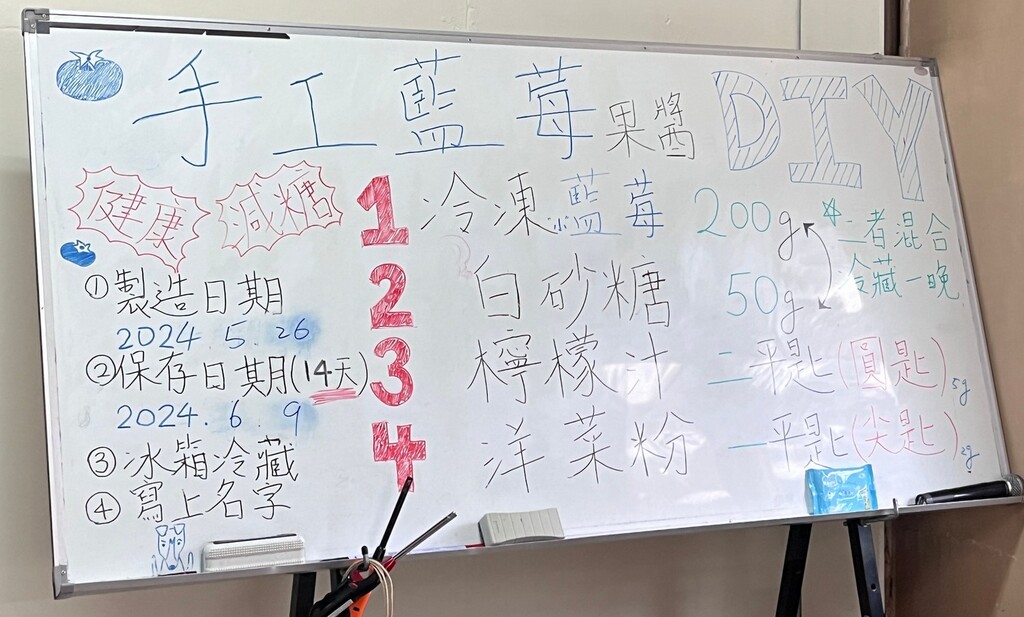 手工藍莓果醬 DIY
健康 減糖
①製造日期
2024.5.26
②保存日期(14天)
2024.6.9
③冰箱冷藏
④寫上名字
1 冷凍藍莓 200g
2 白砂糖 50g
*二者混合
冷藏一晚
3 檸檬汁 二平匙(圓匙)5g
4 洋菜粉 一平匙(尖匙)2g